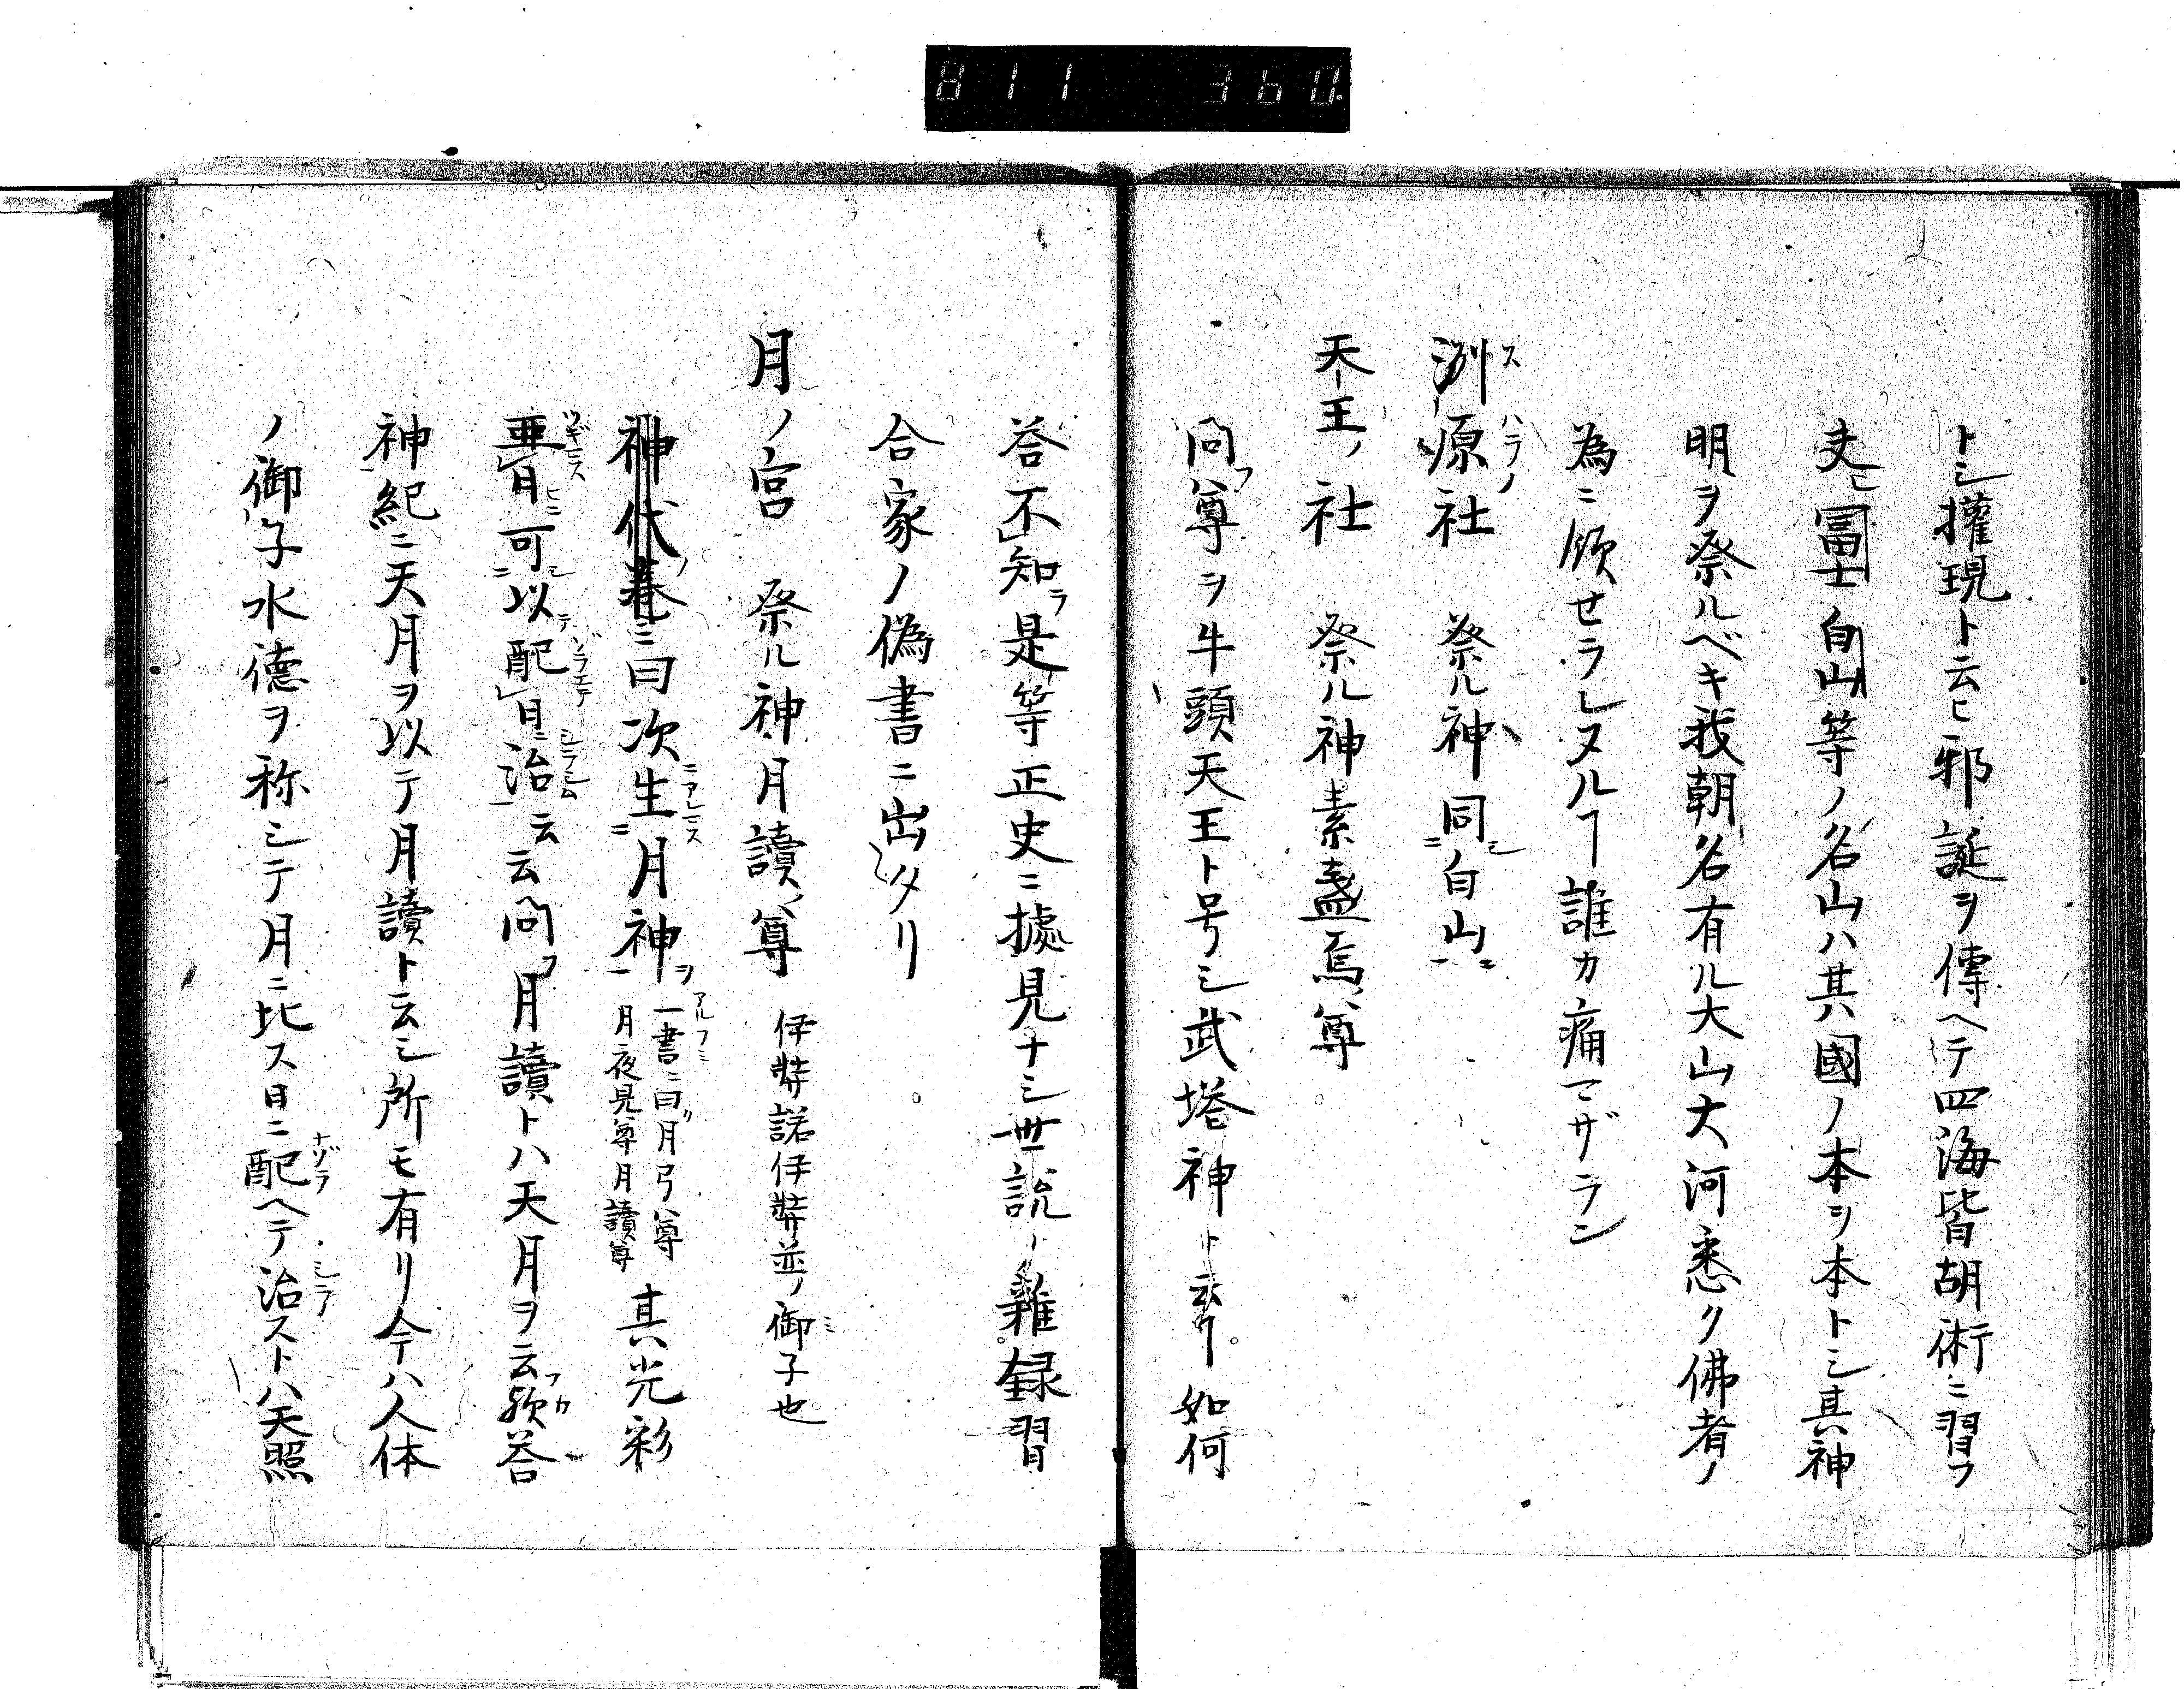 811 360.
トシ権現ト云ヒ邪誕ヲ傳ヘテ四海皆胡術ニ習フ
冨士白山等ノ名山ハ其國ノ本ヲ本トシ其神
明ヲ祭ルベキ我朝名有ル大山大河悉ク佛者ノ
為ニ領せラレヌルヿ誰カ痛マザラン
洲原社 祭ル神同シ白山ニ
天王ノ社 祭ル神素盞烏尊
問フ尊ヲ牛頭天王ト号シ武塔神ト云ヿ如何
答不知ラ是等正史ニ據見ナシ世説ノ雜録習
合家ノ偽書ニ出タリ
月ノ宮 祭ル神月讀尊 伊弉諾伊弉並ノ御子也
神代巻ニ曰次生月神ヲ 一書ニ曰月弓尊 月夜見尊月讀尊 其光彩
亜日可以配日治云云問フ月讀トハ天月ヲ云フカ歟答
神紀ニ天月ヲ以テ月讀ト云シ所モ有リ今ハ人体
ノ御子水德ヲ称シテ月ニ比ス日ニ配ヘテ治ストハ天照